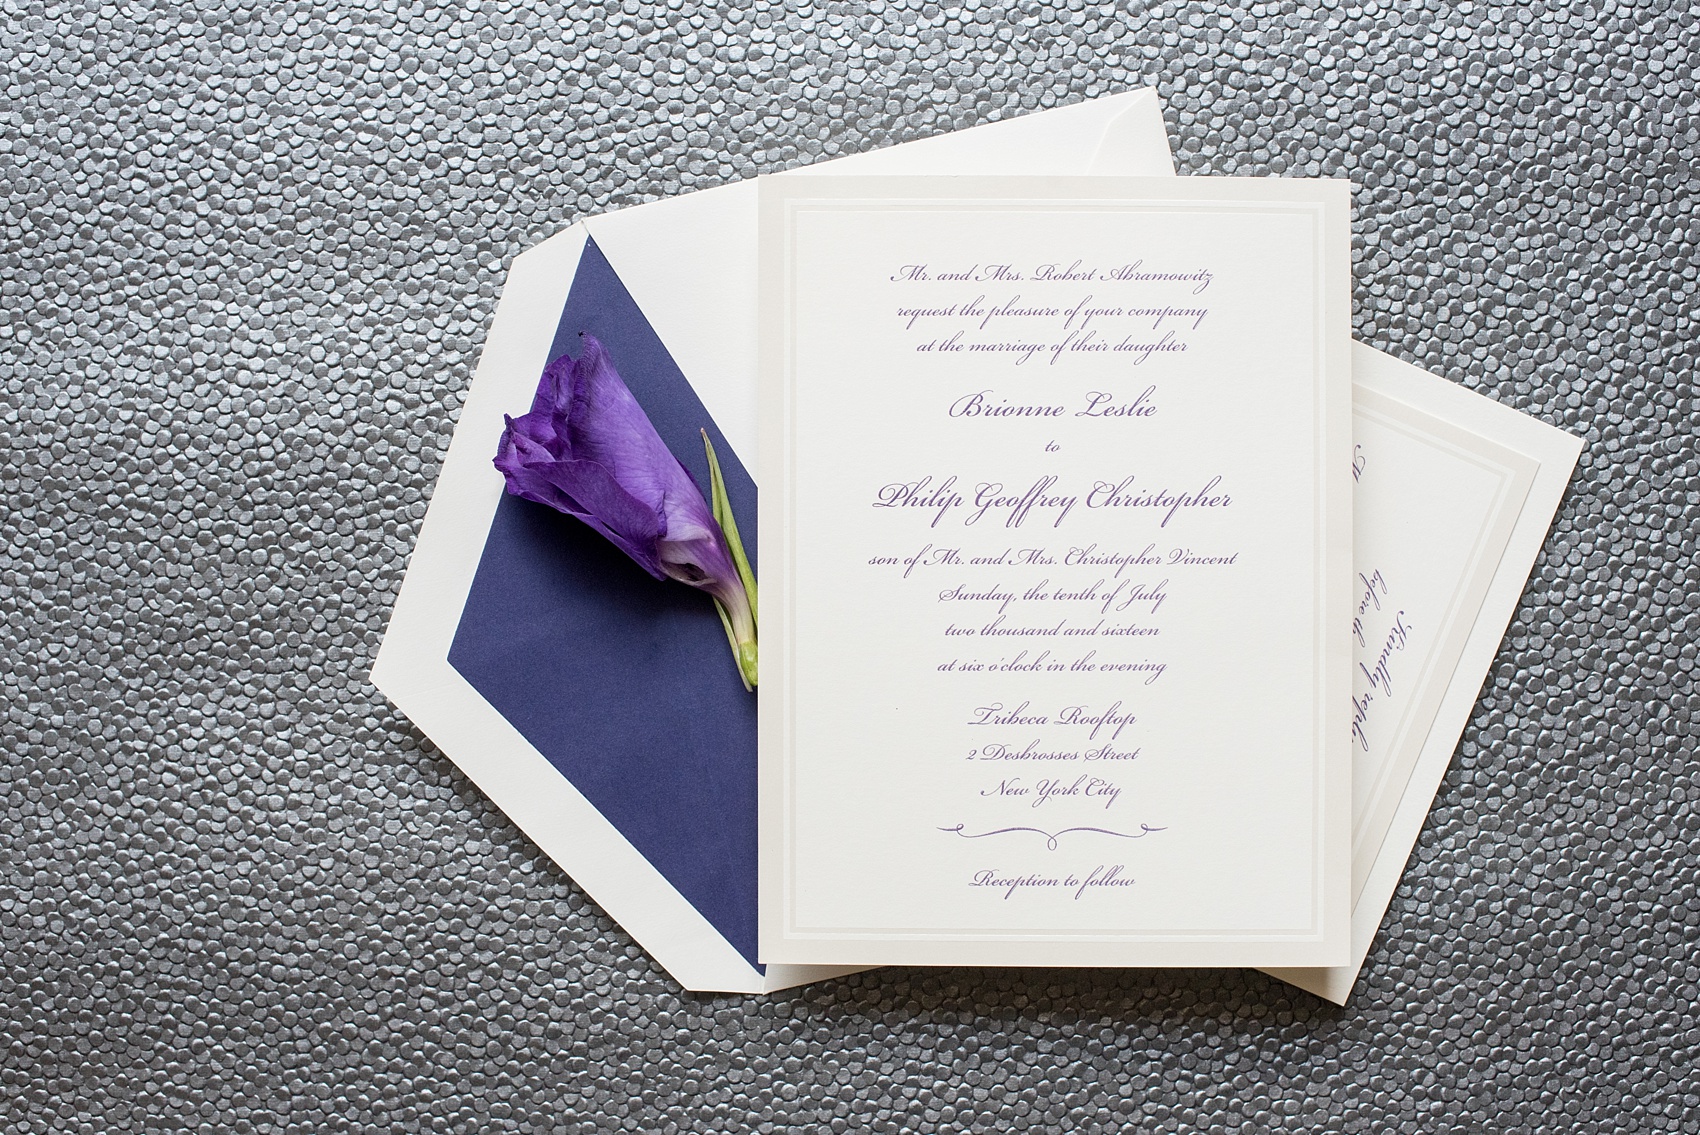 Mr. and Mrs. Robert Abramowitz
request the pleasure of your company
at the marriage of their daughter
Brionne Leslie
to
Philip Geoffrey Christopher
son of Mr. and Mrs. Christopher Vincent
Sunday, the tenth of July
two thousand and sixteen
at six o'clock in the evening
Tribeca Rooftop
2 Desbrosses Street
New York City
Reception to follow
Kindly reply
before